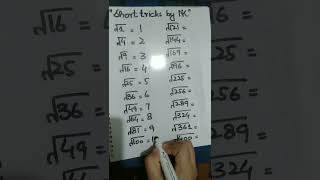 "Short tricks by NK"
√1 = 1
√4 = 2
√9 = 3
√16 = 4
√25 = 5
√36 = 6
√49 = 7
√64 = 8
√81 = 9
√100 = 1
√121 =
√144 =
√169 =
√196 =
√225 =
√256 =
√289 =
√324 =
√361 =
√400 =
√16
√25
√36
√49